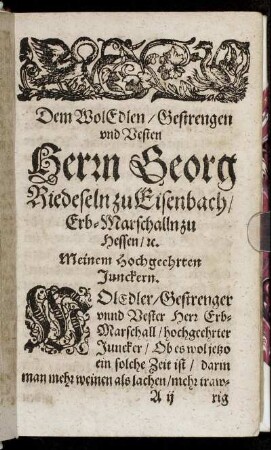 Dem WolEdlen/Gestrengen
vnd Vesten
Herrn Georg
Riedeseln zu Eisenbach/
Erb-Marschalln zu
Hessen/ ꝛc.
Meinem Hochgeehrten
Junckern.
WOlEdler/Gestrenger
vnnd Vester Herr Erb-
Marschall/hochgeehrter
Juncker/ Ob es wol jetzo
ein solche Zeit ist/ darin
man mehr weinen als lachen/mehr traw-
A ij rig